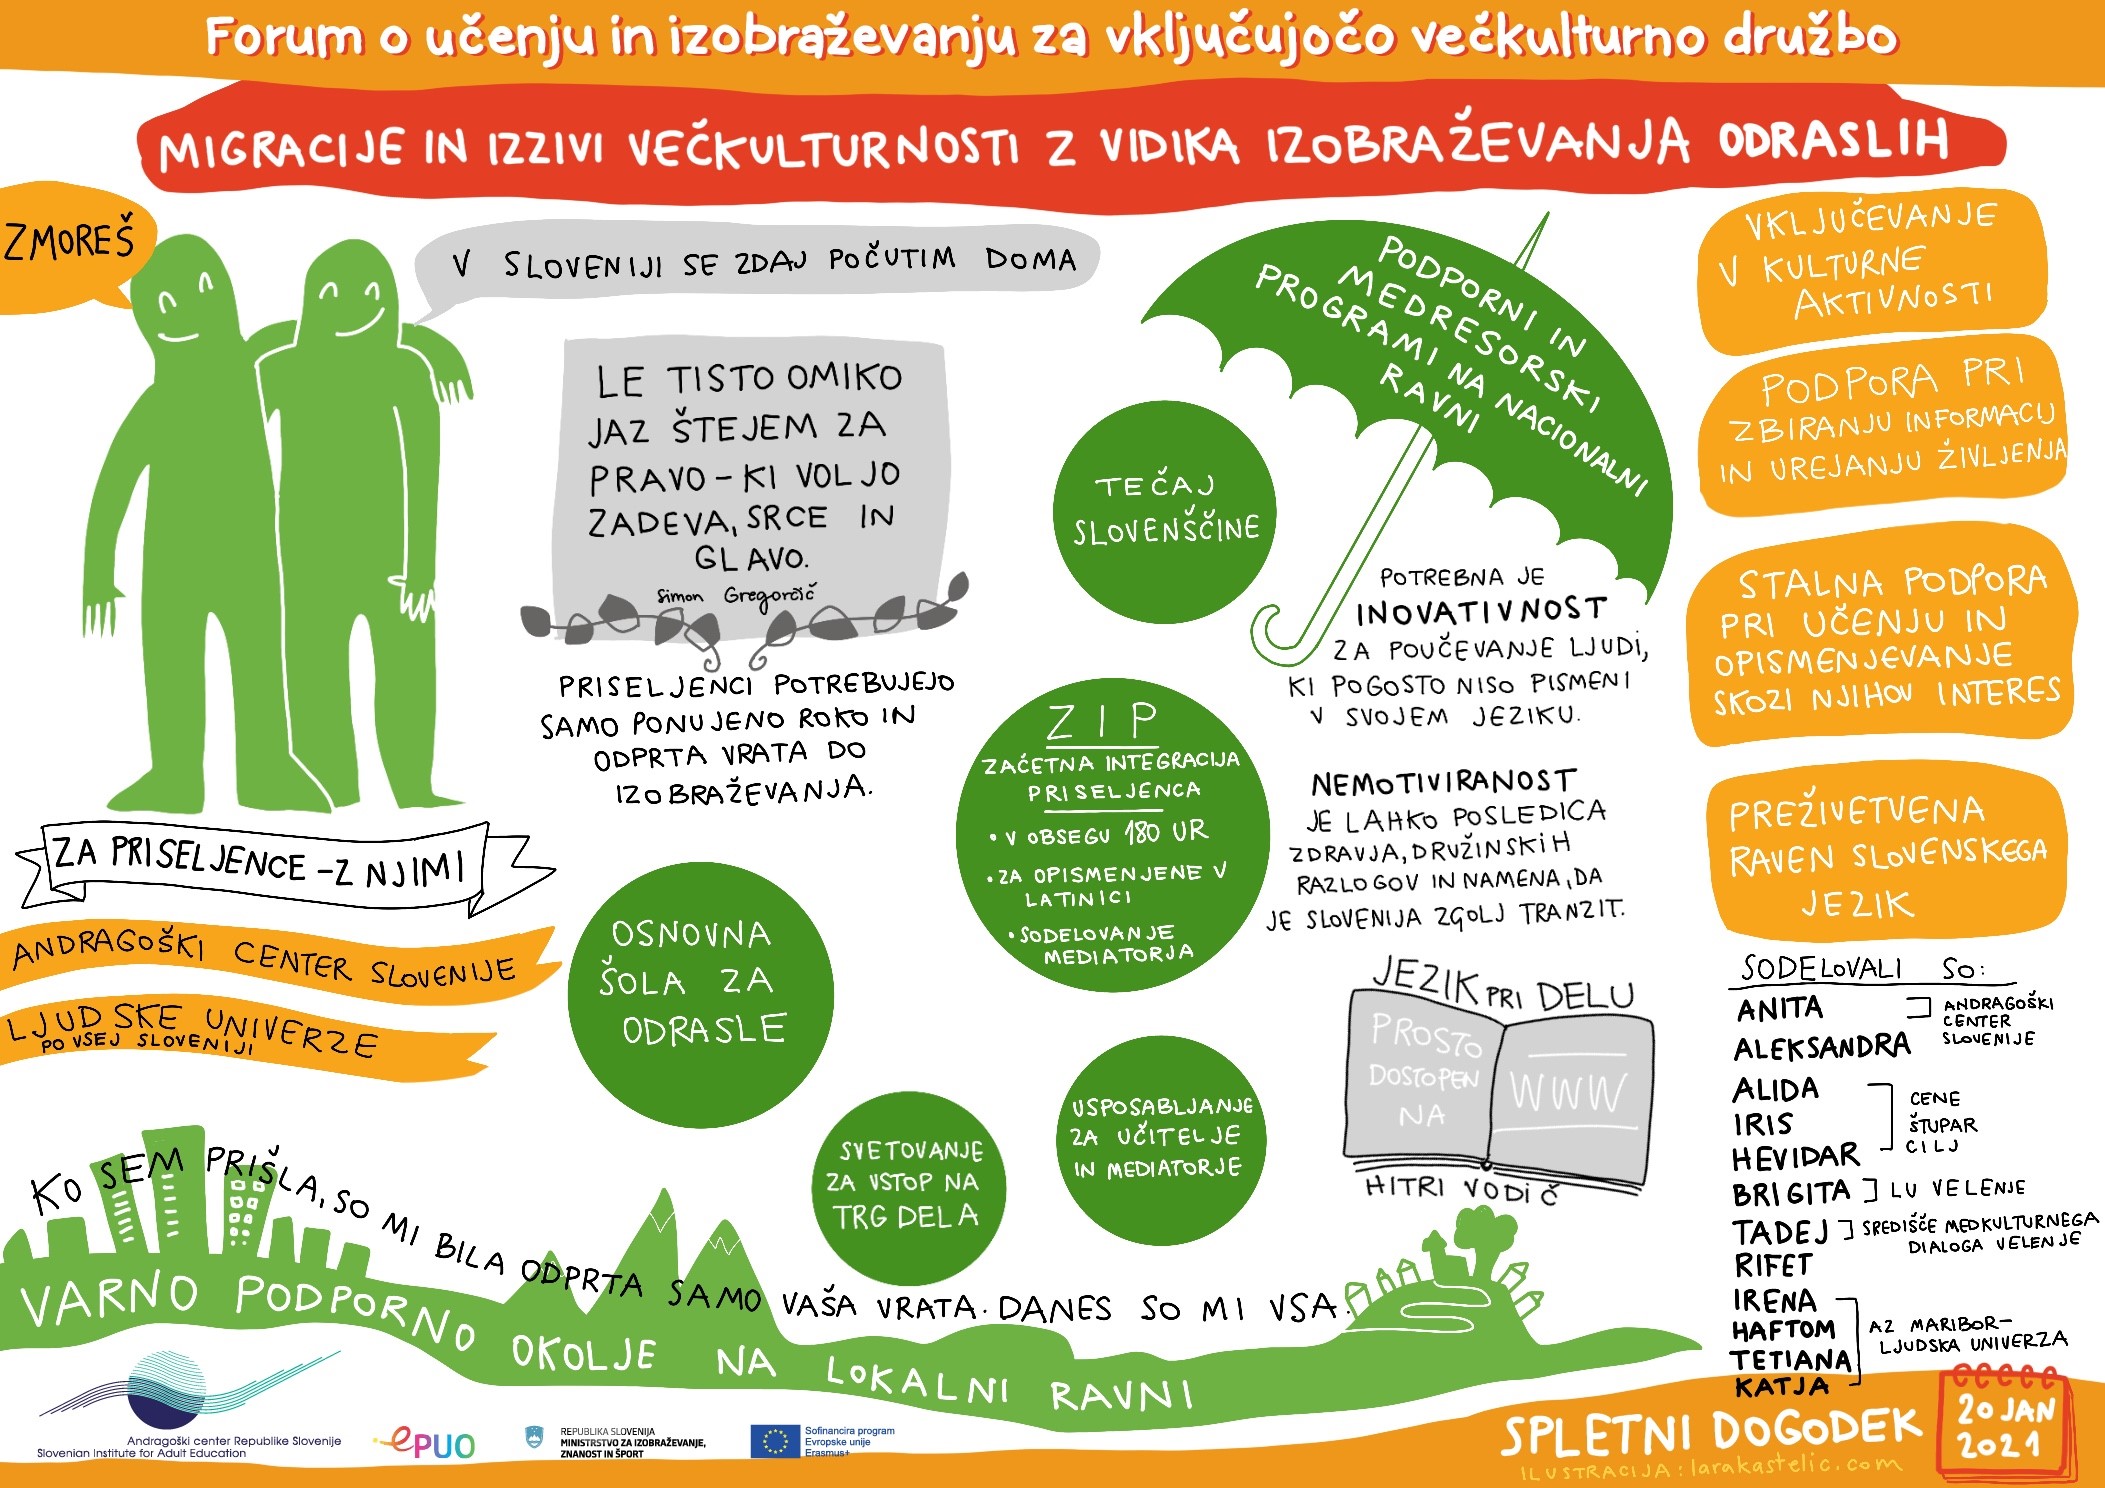 Forum o učenju in izobraževanju za vključujočo večkulturno družbo
MIGRACIJE IN IZZIVI VEČKULTURNOSTI Z VIDIKA IZOBRAŽEVANJA ODRASLIH
ZMOREŠ
V SLOVENIJI SE ZDAJ POČUTIM DOMA
LE TISTO OMIKO
JAZ ŠTEJEM ZA
PRAVO - KI VOLJO
ZADEVA, SRCE IN
GLAVO.
Simon Gregorčič
PRISELJENCI POTREBUJEJO
SAMO PONUJENO ROKO IN
ODPRTA VRATA DO
IZOBRAŽEVANJA.
ZA PRISELJENCE - Z NJIMI
ANDRAGOŠKI CENTER SLOVENIJE
LJUDSKE UNIVERZE
PO VSEJ SLOVENIJI
PODPORNI IN
MEDRESORSKI
PROGRAMI NA NACIONALNI
RAVNI
TEČAJ
SLOVENŠČINE
ZIP
ZAČETNA INTEGRACIJA
PRISELJENCA
• V OBSEGU 180 UR
• ZA OPISMENJENE V
LATINICI
• SODELOVANJE
MEDIATORJA
OSNOVNA
ŠOLA ZA
ODRASLE
SVETOVANJE
ZA VSTOP NA
TRG DELA
USPOSABLJANJE
ZA UČITELJE
IN MEDIATORJE
POTREBNA JE
INOVATIVNOST
ZA POUČEVANJE LJUDI,
KI POGOSTO NISO PISMENI
V SVOJEM JEZIKU.
NEMOTIVIRANOST
JE LAHKO POSLEDICA
ZDRAVJA, DRUŽINSKIH
RAZLOGOV IN NAMENA, DA
JE SLOVENIJA ZGOLJ TRANZIT.
JEZIK PRI DELU
PROSTO
DOSTOPEN
NA
WWW
HITRI VODIČ
VKLJUČEVANJE
V KULTURNE
AKTIVNOSTI
PODPORA PRI
ZBIRANJU INFORMACIJ
IN UREJANJU ŽIVLJENJA
STALNA PODPORA
PRI UČENJU IN
OPISMENJEVANJE
SKOZI NJIHOV INTERES
PREŽIVETVENA
RAVEN SLOVENSKEGA
JEZIK
SODELOVALI SO:
ANITA
ALEKSANDRA
ANDRAGOŠKI
CENTER
SLOVENIJE
ALIDA
IRIS
HEVIDAR
CENE
ŠTUPAR
CILJ
BRIGITA LU VELENJE
TADEJ SREDIŠČE MEDKULTURNEGA
DIALOGA VELENJE
RIFET
IRENA
HAFTOM
TETIANA
KATJA
AZ MARIBOR-
LJUDSKA UNIVERZA
KO SEM PRIŠLA, SO MI BILA ODPRTA SAMO VAŠA VRATA. DANES SO MI VSA.
VARNO PODPORNO OKOLJE NA LOKALNI RAVNI
Andragoški center Republike Slovenije
Slovenian Institute for Adult Education
ePUO
REPUBLIKA SLOVENIJA
MINISTRSTVO ZA IZOBRAŽEVANJE,
ZNANOST IN ŠPORT
Sofinancira program
Evropske unije
Erasmus+
SPLETNI DOGODEK
20 JAN
2021
ILUSTRACIJA: larakastelic.com